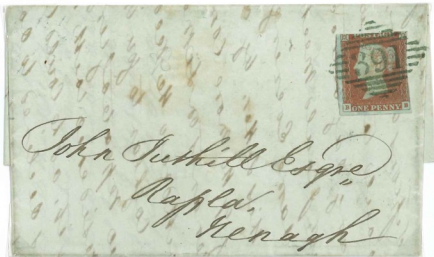 POSTAGE
391
ONE PENNY
John Tuthill Esqre
Rapla.
Nenagh